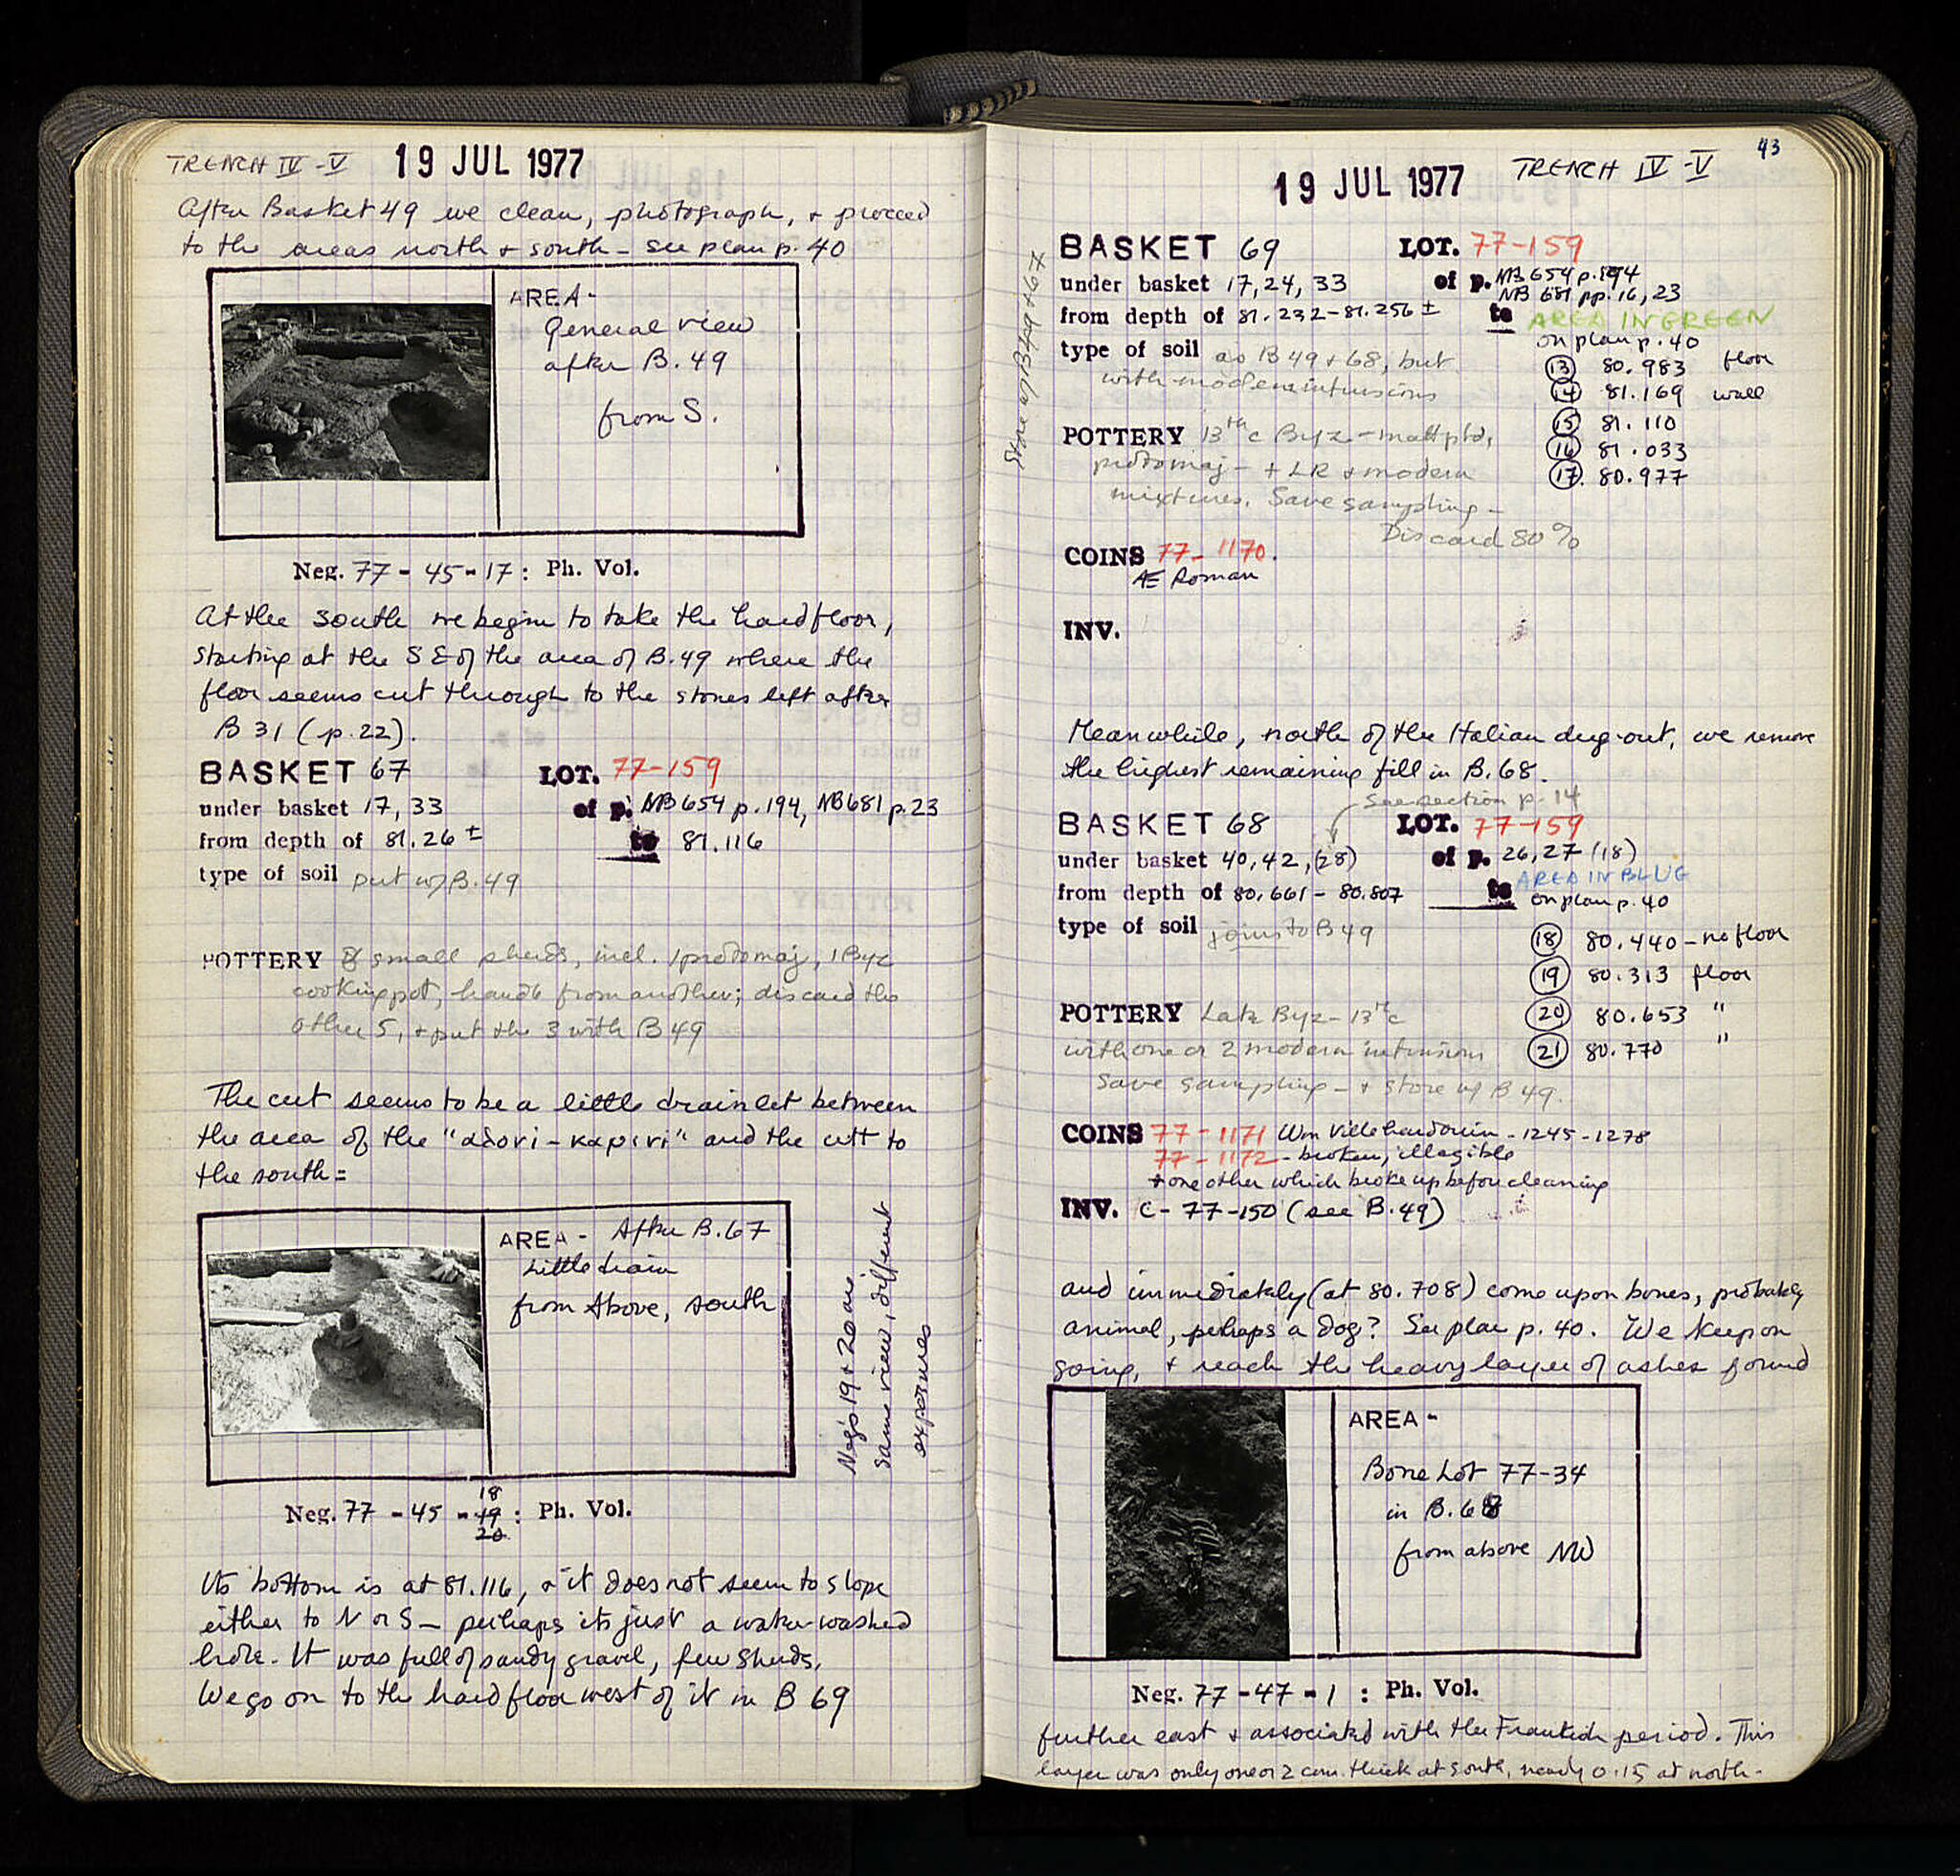 TRENCH IV - V 19 JUL 1977
After Basket 49 we clean, photograph, + proceed
to the areas north + south - see plan p. 40
AREA-
General view
after B. 49
from S.
Neg. 77 - 45 - 17 : Ph. Vol.
At the south we begin to take the hard floor,
starting at the SE of the area of B. 49 where the
floor seems cut through to the stones left after
B 31 (p. 22).
BASKET 67 LOT. 77-159
under basket 17, 33 of p. NB 654 p. 194, NB 681 p. 23
from depth of 81.26 ± to 81.116
type of soil put w/ B. 49
POTTERY 8 small sherds, incl. 1 protomaj, 1 Byz
cooking pot, handle from another; discard the
other 5, + put the 3 with B 49
The cut seems to be a little drainlet between
the area of the and the cutt to
the south =
AREA - After B. 67
Little drain
from Above, south
Neg's 19 + 20 are
same view, different
exposures
Neg. 77 - 45 - 18 19 20 : Ph. Vol.
Its bottom is at 81.116, + it does not seem to slope
either to N or S - perhaps its just a water-washed
hole. It was full of sandy gravel, few sherds.
We go on to the hard floor west of it in B 69
43
19 JUL 1977 TRENCH IV - V
BASKET 69 LOT. 77-159
under basket 17, 24, 33 of p. NB 654 p. 194
NB 681 pp. 16, 23
from depth of 81.232 - 81.256 ± to AREA IN GREEN
on plan p. 40
type of soil as B 49 + 68, but
with modern intrusions
13 80.983 floor
14 81.169 wall
15 81.110
16 81.033
17 80.977
POTTERY 13th c Byz - matt ptd,
protomaj - + LR + modern
mixtures. Save sampling -
Discard 80%
COINS 77-1170.
Æ Roman
INV.
Meanwhile, north of the Italian dug-out, we remove
the highest remaining fill in B. 68.
see section p. 14
BASKET 68 LOT. 77-159
under basket 40, 42, (28) of p. 26, 27 (18)
from depth of 80.661 - 80.807 to AREA IN BLUE
on plan p. 40
type of soil joins to B 49
18 80.440 - no floor
19 80.313 floor
20 80.653 "
21 80.770 "
POTTERY Late Byz - 13th c
with one or 2 modern intrusions
Save sampling - + store w/ B 49.
COINS 77-1171 Wm Villehardouin - 1245-1278
77-1172 - broken, illegible
+ one other which broke up before cleaning
INV. C-77-150 (see B. 49)
and immediately (at 80.708) come upon bones, probably
animal, perhaps a dog? See plan p. 40. We keep on
going, + reach the heavy layer of ashes found
AREA -
Bone Lot 77-34
in B. 68
from above NW
Neg. 77 - 47 - 1 : Ph. Vol.
further east + associated with the Frankish period. This
layer was only one or 2 cm. thick at south, nearly 0.15 at north -